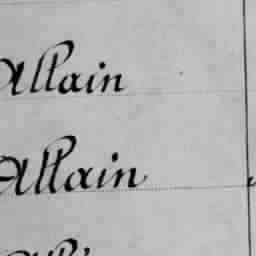 Allain
Allain